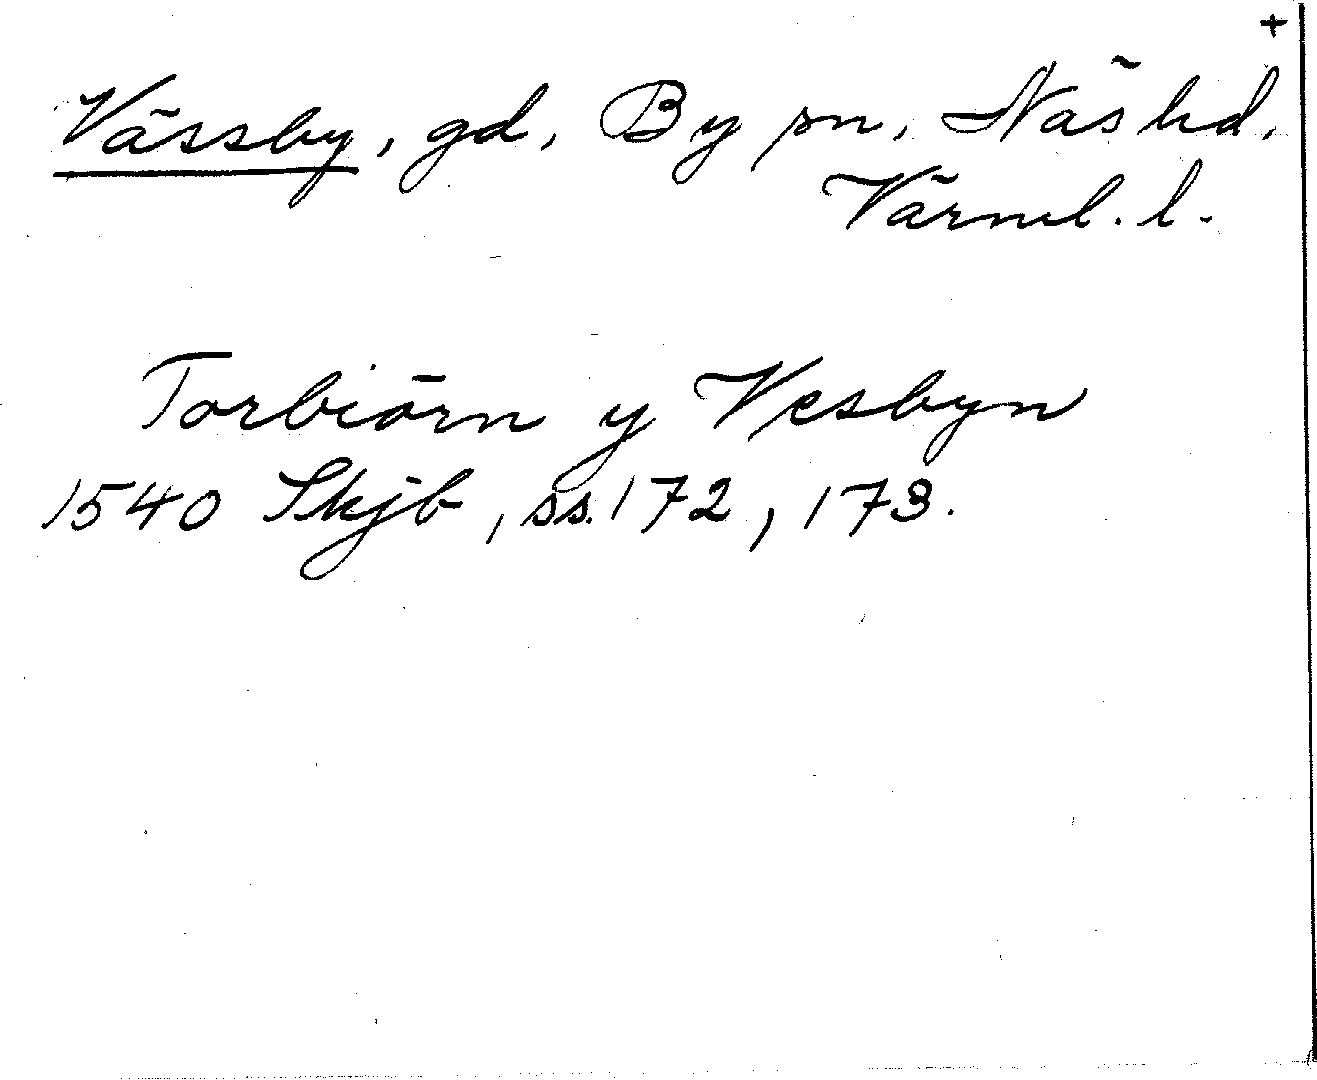 +
Vässby, gd, By sn, Näs hd,
Värml. l.
Torbiörn y Vesbyn
1540 Skjb, ss. 172, 173.